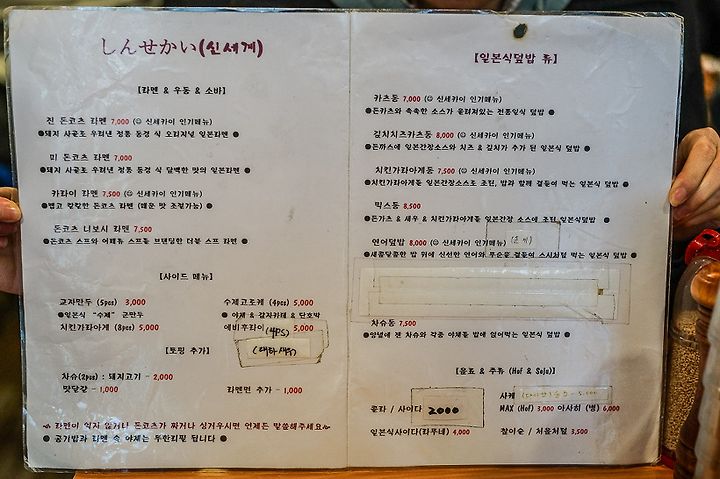 しんせかい(신세계)
[라멘 & 우동 & 소바]
진 돈코츠 라멘 7,000 (☺ 신세카이 인기메뉴)
●돼지 사골로 우려낸 정통 동경 식 오리지널 일본라멘 ●
미 돈코츠 라멘 7,000
●돼지 사골로 우려낸 정통 동경 식 담백한 맛의 일본라멘 ●
카라이 라멘 7,500 (☺ 신세카이 인기메뉴)
●맵고 칼칼한 돈코츠 라멘 (매운 맛 조절가능) ●
돈코츠 니보시 라멘 7,500
●돈코츠 스프와 어패류 스프를 브랜딩한 더블 스프 라멘 ●
[사이드 메뉴]
교자만두 (5pcs) 3,000
●일본식 "수제" 군만두
치킨가라아게 (8pcs) 5,000
수제고로케 (4pcs) 5,000
● 야채 & 감자카레 & 단호박
에비후라이 (4PS) 5,000
[토핑 추가]
차슈(2pcs) : 돼지고기 - 2,000
맛달걀 - 1,000
라멘면 추가 - 1,000
라면이 익지 않거나 돈코츠가 짜거나 싱거우시면 언제든 말씀해주세요
● 공기밥과 라멘 속 야채는 무한리필 됩니다 ●
[일본식덮밥 류]
카츠동 7,000 (☺ 신세카이 인기메뉴)
●돈카츠와 촉촉한 소스가 올려져있는 전통일식 덮밥 ●
김치치즈카츠동 8,000 (☺ 신세카이 인기메뉴)
●돈까스에 일본간장소스와 치즈 & 김치가 추가 된 일본식 덮밥 ●
치킨가라아게동 7,500 (☺ 신세카이 인기메뉴)
●치킨가라아게를 일본간장소스로 조린, 밥과 함께 곁들여 먹는 일본식 덮밥 ●
믹스동 8,500
●돈가츠 & 새우 & 치킨가라아게를 일본간장 소스에 조린 일본식덮밥 ●
연어덮밥 8,000 (☺ 신세카이 인기메뉴)
●새콤달콤한 밥 위에 신선한 연어와 무순을 곁들여 스시처럼 먹는 일본식 덮밥 ●
차슈동 7,500
●양념에 잰 차슈와 각종 야채를 밥에 얹어먹는 일본식 덮밥 ●
[음료 & 주류 (Hof & Soju)]
콜라 / 사이다 2000
일본식사이다(라무네) 4,000
사케
MAX (Hof) 3,000 아사히 (병) 6,000
참이슬 / 처음처럼 3,500